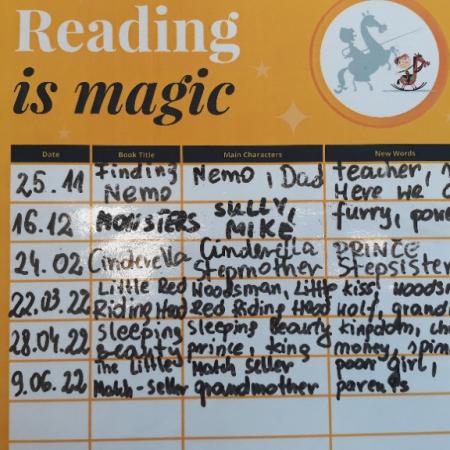 Reading
is magic
Date Book Title Main Characters New Words
25.11 Finding Nemo Nemo, Dad teacher,
Here we
16.12 MONSTERS SULLY, MIKE furry,
24.02 Cinderella Cinderella Stepmother PRINCE
Stepsister
22.03.22 Little Red Riding Hood Woodsman, Little Red Riding Hood kiss, woods
wolf,
28.04.22 Sleeping Beauty sleeping beauty prince, king kingdom,
money,
9.06.22 The Little Match-Seller Match Seller grandmother poor girl,
parents